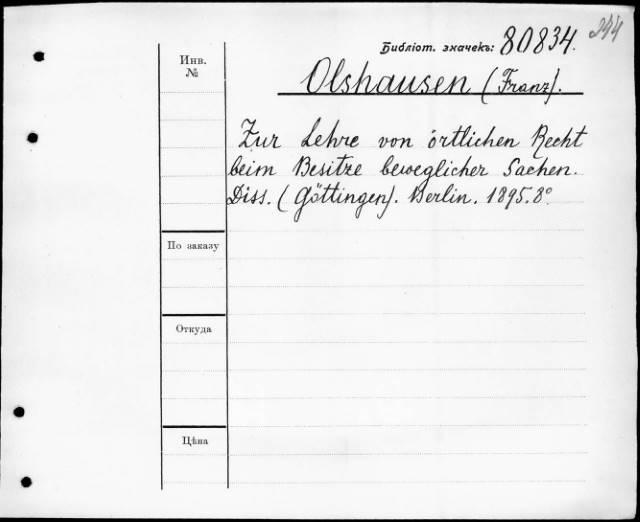 244
Библіот. значекъ: 80834.
Инв.
№
Olshausen (Franz).
Zur Lehre von örtlichen Recht
beim Besitze beweglicher Sachen.
Diss. (Göttingen). Berlin. 1895. 8°.
По заказу
Откуда
Цѣна